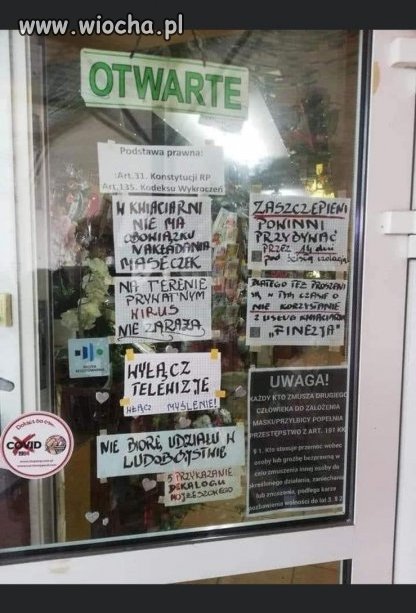 www.wiocha.pl
OTWARTE
Podstawa prawna:
:Art.31. Konstytucji RP
Art.135. Kodeksu Wykroczeń
W KWIACIARNI
NIE MA
OBOWIĄZKU
NAKŁADANIA
MASECZEK
NA TERENIE
PRYWATNYM
WIRUS
NIE ZARAŻA
WYŁĄCZ
TELEWIZJĘ
WŁĄCZ MYŚLENIE!
NIE BIORĘ UDZIAŁU W
LUDOBÓJSTWIE
5 PRZYKAZANIE
DEKALOGU
MOJŻESZOWEGO
ZASZCZEPIENI
POWINNI
PRZEBYWAĆ
PRZEZ 14 dni
pod ścisłą izolacją
DLATEGO TEŻ PROSZENI
SĄ W TYM CZASIE O
NIE KORZYSTANIE
Z USŁUG KWIACIARNI
"FINEZJA"
UWAGA!
KAŻDY KTO ZMUSZA DRUGIEGO
CZŁOWIEKA DO ZAŁOŻENIA
MASKI/PRZYŁBICY POPEŁNIA
PRZESTĘPSTWO Z ART. 191 KK
§ 1. Kto stosuje przemoc wobec
osoby lub groźbę bezprawną w
celu zmuszenia innej osoby do
określonego działania, zaniechania
lub znoszenia, podlega karze
pozbawienia wolności do lat 3. § 2
COVID